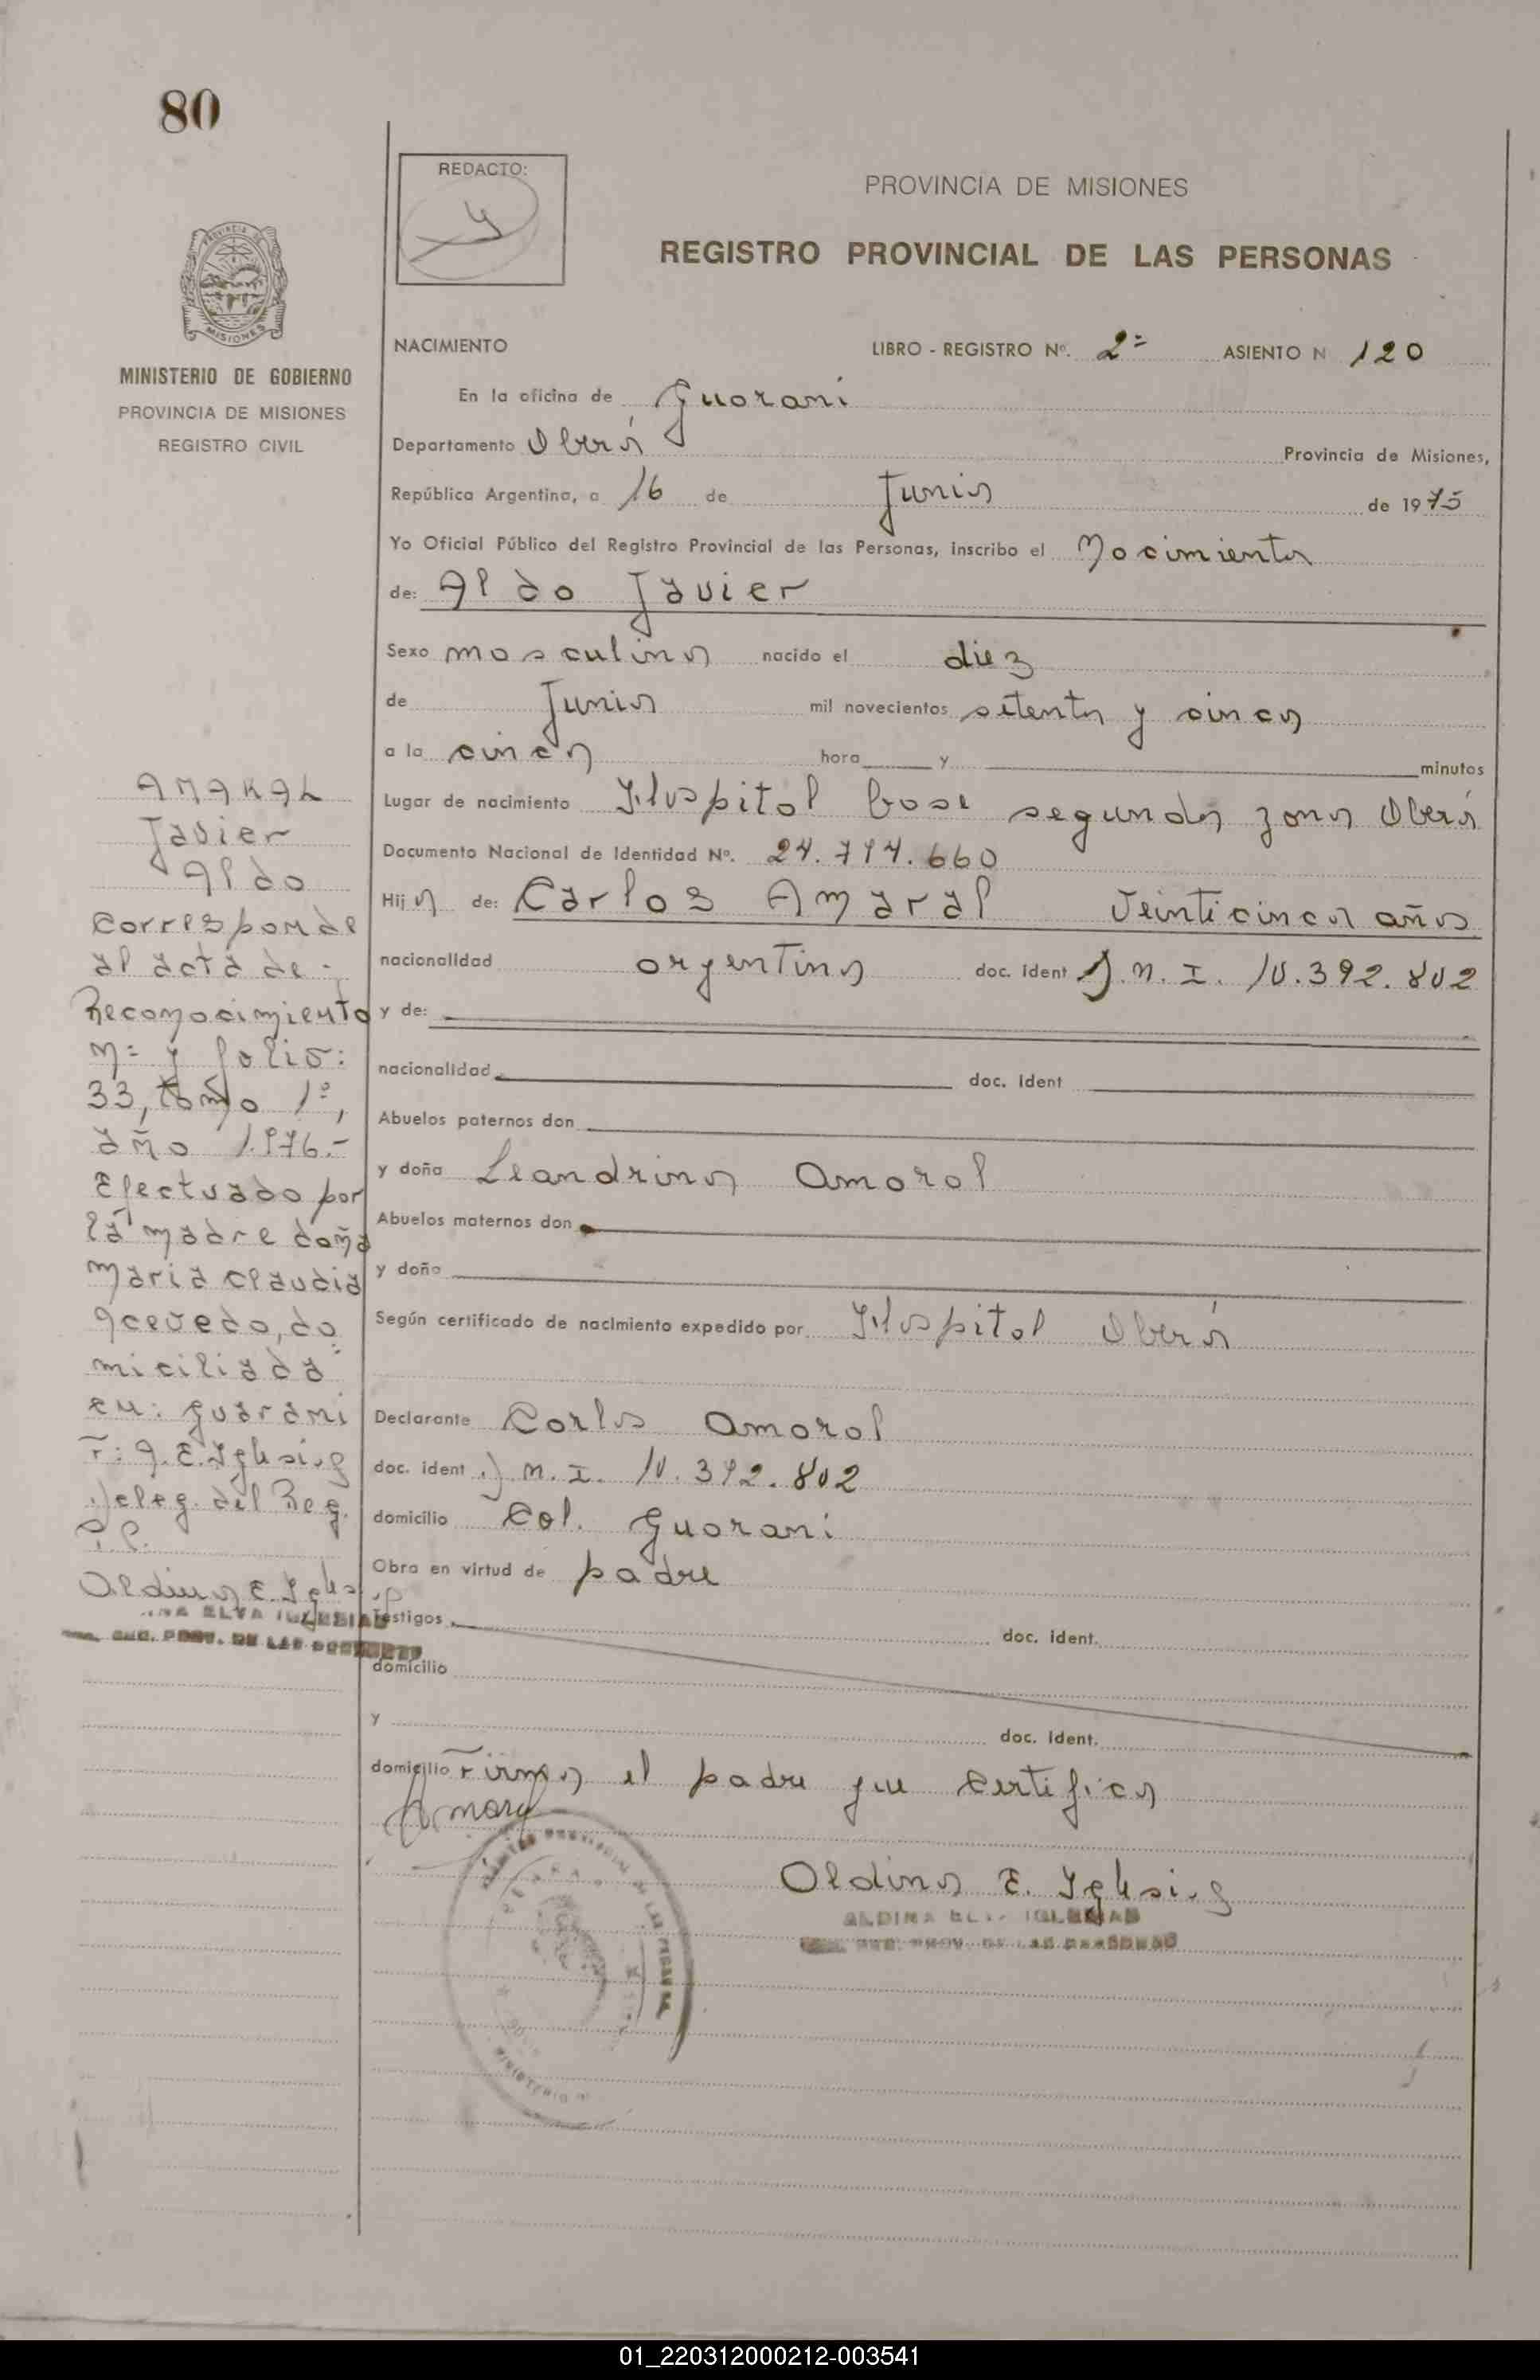 80
REDACTO:
PROVINCIA DE MISIONES
REGISTRO PROVINCIAL DE LAS PERSONAS
PROVINCIA DE
MISIONES
MINISTERIO DE GOBIERNO
PROVINCIA DE MISIONES
REGISTRO CIVIL
NACIMIENTO LIBRO - REGISTRO Nº. 2º ASIENTO N 120
En la oficina de Guarani
Departamento Oberá Provincia de Misiones,
República Argentina, a 16 de Junio de 1975
Yo Oficial Público del Registro Provincial de las Personas, inscribo el Nacimiento
de: Aldo Javier
Sexo masculino nacido el diez
de Junio mil novecientos setenta y cinco
a la cinco hora y minutos
Lugar de nacimiento Hospital base segunda zona Oberá
Documento Nacional de Identidad Nº. 24.714.660
Hijo de: Carlos Amaral Veinticinco años
nacionalidad argentino doc. ident D.N.I. 10.392.802
y de:
nacionalidad doc. ident
Abuelos paternos don
y doña Leandrina Amaral
Abuelos maternos don
y doña
Según certificado de nacimiento expedido por Hospital Oberá
Declarante Carlos Amaral
doc. ident D.N.I. 10.392.802
domicilio Col. Guarani
Obra en virtud de padre
Testigos doc. ident.
domicilio
y doc. ident.
domicilio Firma el padre que certifica
Amaral
Aldina E. Iglesias
ALDINA ELVA IGLESIAS
REG. PROV. DE LAS PERSONAS
AMARAL
Javier
Aldo
Corresponde
al acta de -
Reconocimiento
Nº y folio:
33, tomo 1º,
año 1.976.-
Efectuado por
la madre doña
Maria Claudia
Acevedo, do
miciliada
en: Guarani
F: A. E. Iglesias
Deleg. del Reg.
P.P.
Aldina E. Iglesias
INA ELVA IGLESIAS
REG. PROV. DE LAS PERSONAS
01_220312000212-003541